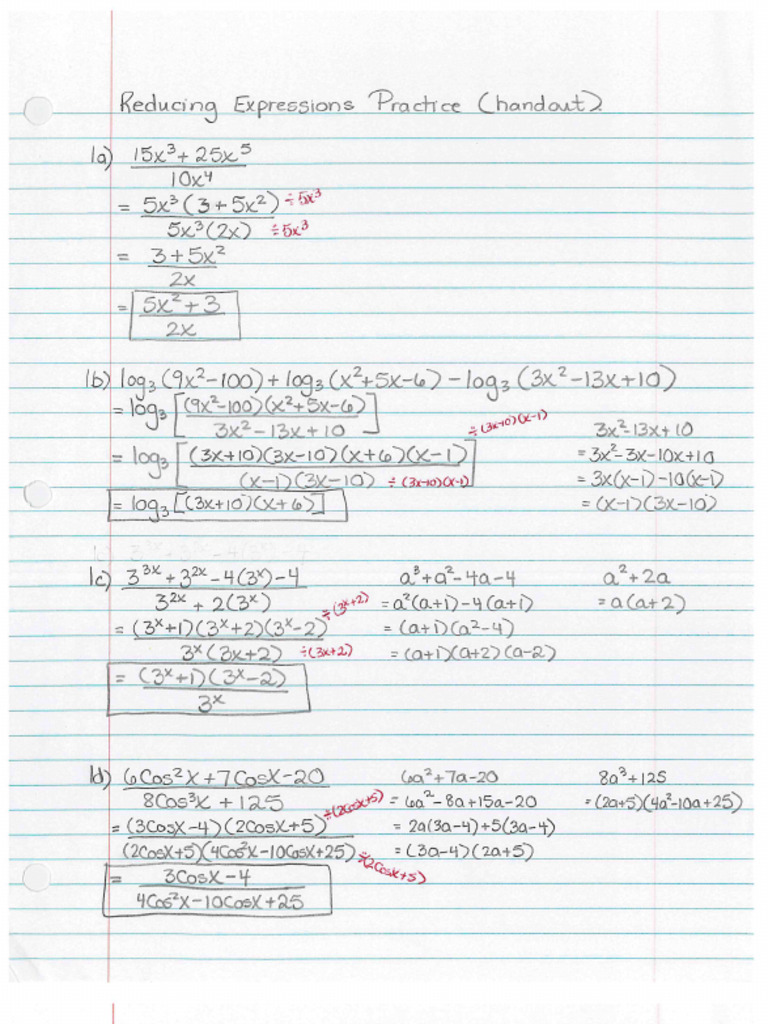 Reducing Expressions Practice (handout).
1a) 15x³ + 25x⁵
10x⁴
= 5x³ (3 + 5x²) ÷5x³
5x³(2x) ÷5x³
= 3 + 5x²
2x
= 5x² + 3
2x
1b) log₃ (9x²-100) + log₃ (x²+5x-6) - log₃ (3x²-13x+10)
= log₃ [(9x²-100)(x²+5x-6)]
3x²-13x+10
÷(3x-10)(x-1)
3x²-13x+10
= log₃ [(3x+10)(3x-10)(x+6)(x-1)]
(x-1)(3x-10) ÷(3x-10)(x-1)
= 3x²-3x-10x+10
= 3x(x-1)-10(x-1)
= (x-1)(3x-10)
= log₃ [(3x+10)(x+6)]
1c) 3³ˣ + 3²ˣ - 4(3ˣ) - 4
3²ˣ + 2(3ˣ)
= (3ˣ+1)(3ˣ+2)(3ˣ-2) ÷(3ˣ+2)
3ˣ(3x+2) ÷(3x+2)
= (3ˣ+1)(3ˣ-2)
3ˣ
a³+a²-4a-4
= a²(a+1)-4(a+1)
= (a+1)(a²-4)
= (a+1)(a+2)(a-2)
a²+2a
= a(a+2)
1d) 6Cos²x+7Cosx-20
8Cos³x + 125
= (3Cosx-4)(2Cosx+5) ÷(2Cosx+5)
(2Cosx+5)(4Cos²x-10Cosx+25) ÷(2Cosx+5)
= 3Cosx-4
4Cos²x-10Cosx+25
6a²+7a-20
= 6a²-8a+15a-20
= 2a(3a-4)+5(3a-4)
= (3a-4)(2a+5)
8a³+125
= (2a+5)(4a²-10a+25)